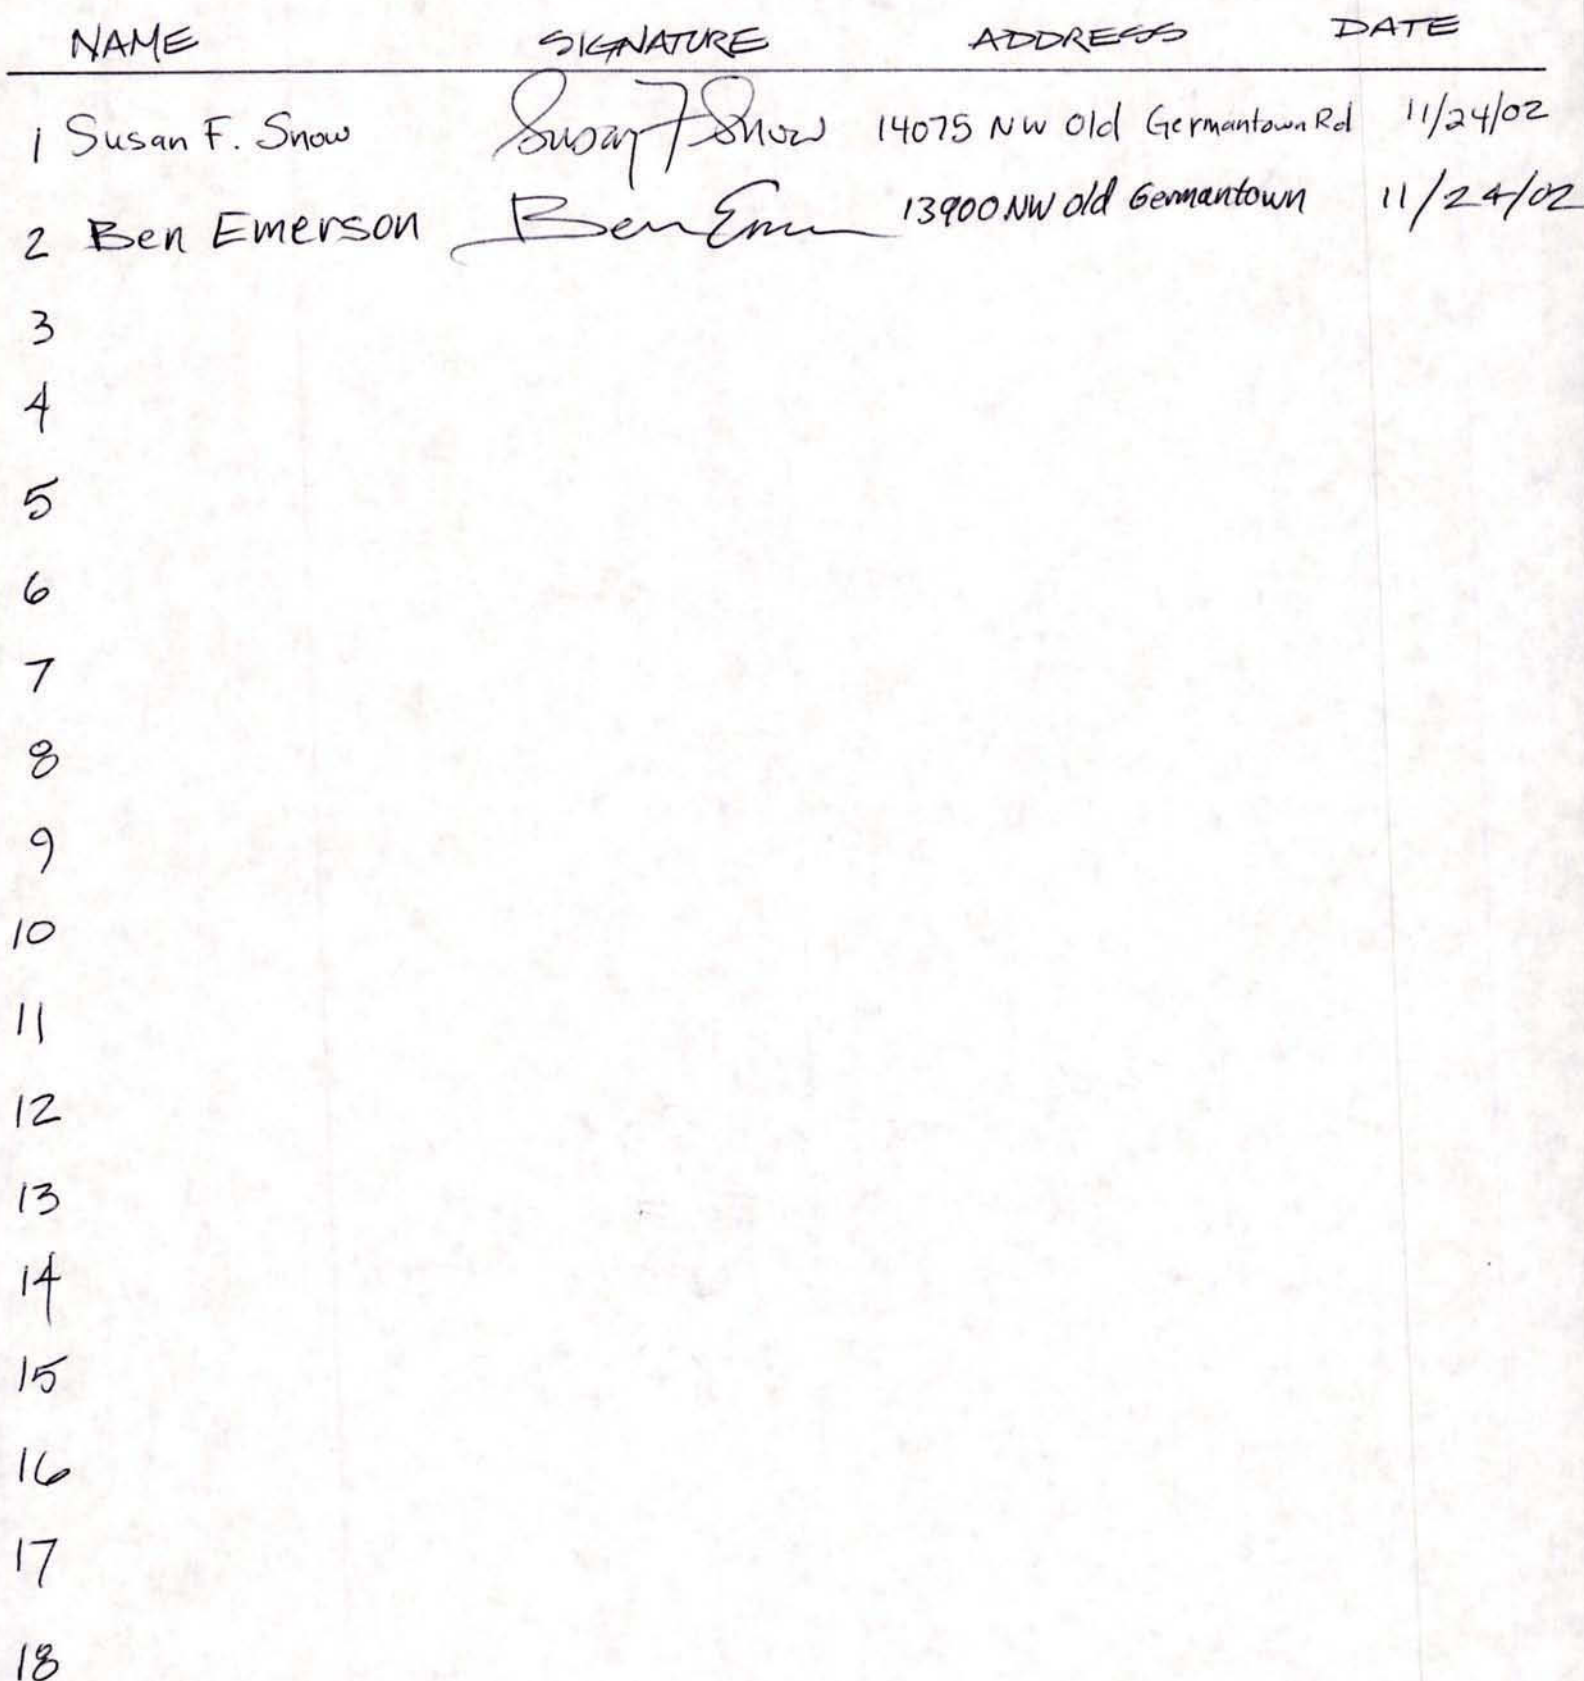 NAME SIGNATURE ADDRESS DATE
1 Susan F. Snow Susan F Snow 14075 NW Old Germantown Rd 11/24/02
2 Ben Emerson Ben Emer 13900 NW Old Germantown 11/24/02
3
4
5
6
7
8
9
10
11
12
13
14
15
16
17
18